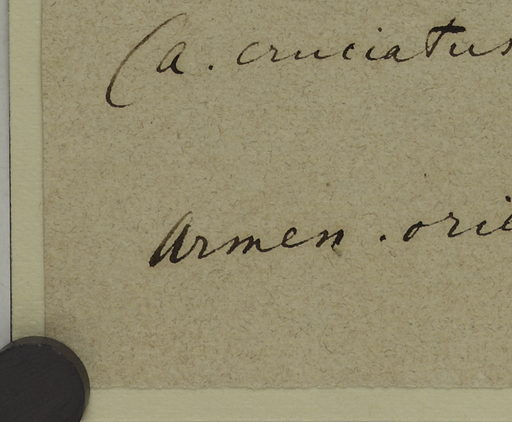 (a. cruciatus
Armen. orie